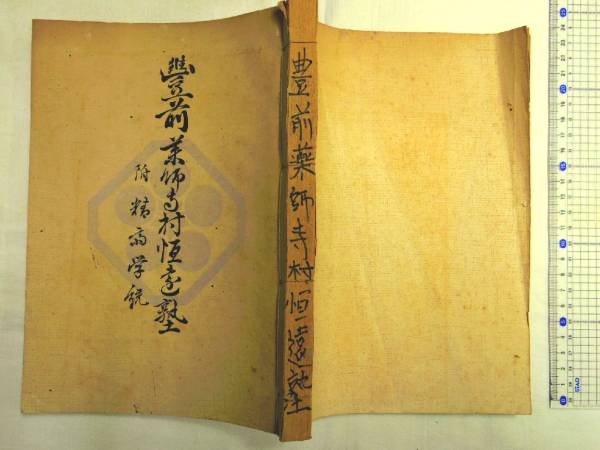 豊前薬師寺村恒遠塾
附 精斎学統
豊前薬師寺村恒遠塾